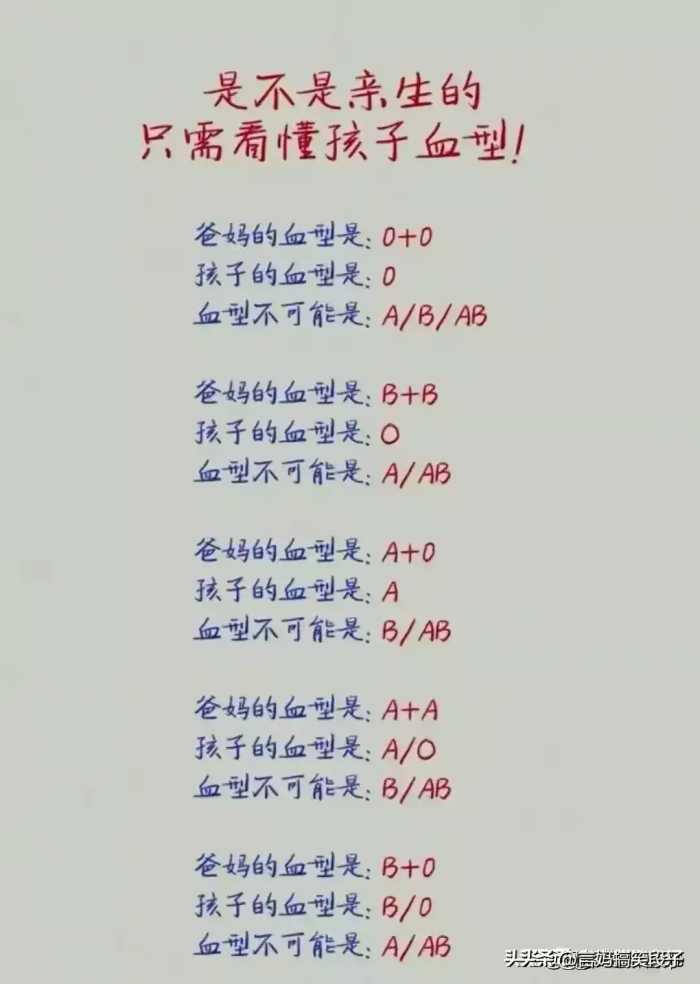 是不是亲生的
只需看懂孩子血型！
爸妈的血型是：O+O
孩子的血型是：O
血型不可能是：A/B/AB
爸妈的血型是：B+B
孩子的血型是：O
血型不可能是：A/AB
爸妈的血型是：A+O
孩子的血型是：A
血型不可能是：B/AB
爸妈的血型是：A+A
孩子的血型是：A/O
血型不可能是：B/AB
爸妈的血型是：B+O
孩子的血型是：B/O
血型不可能是：A/AB
头条